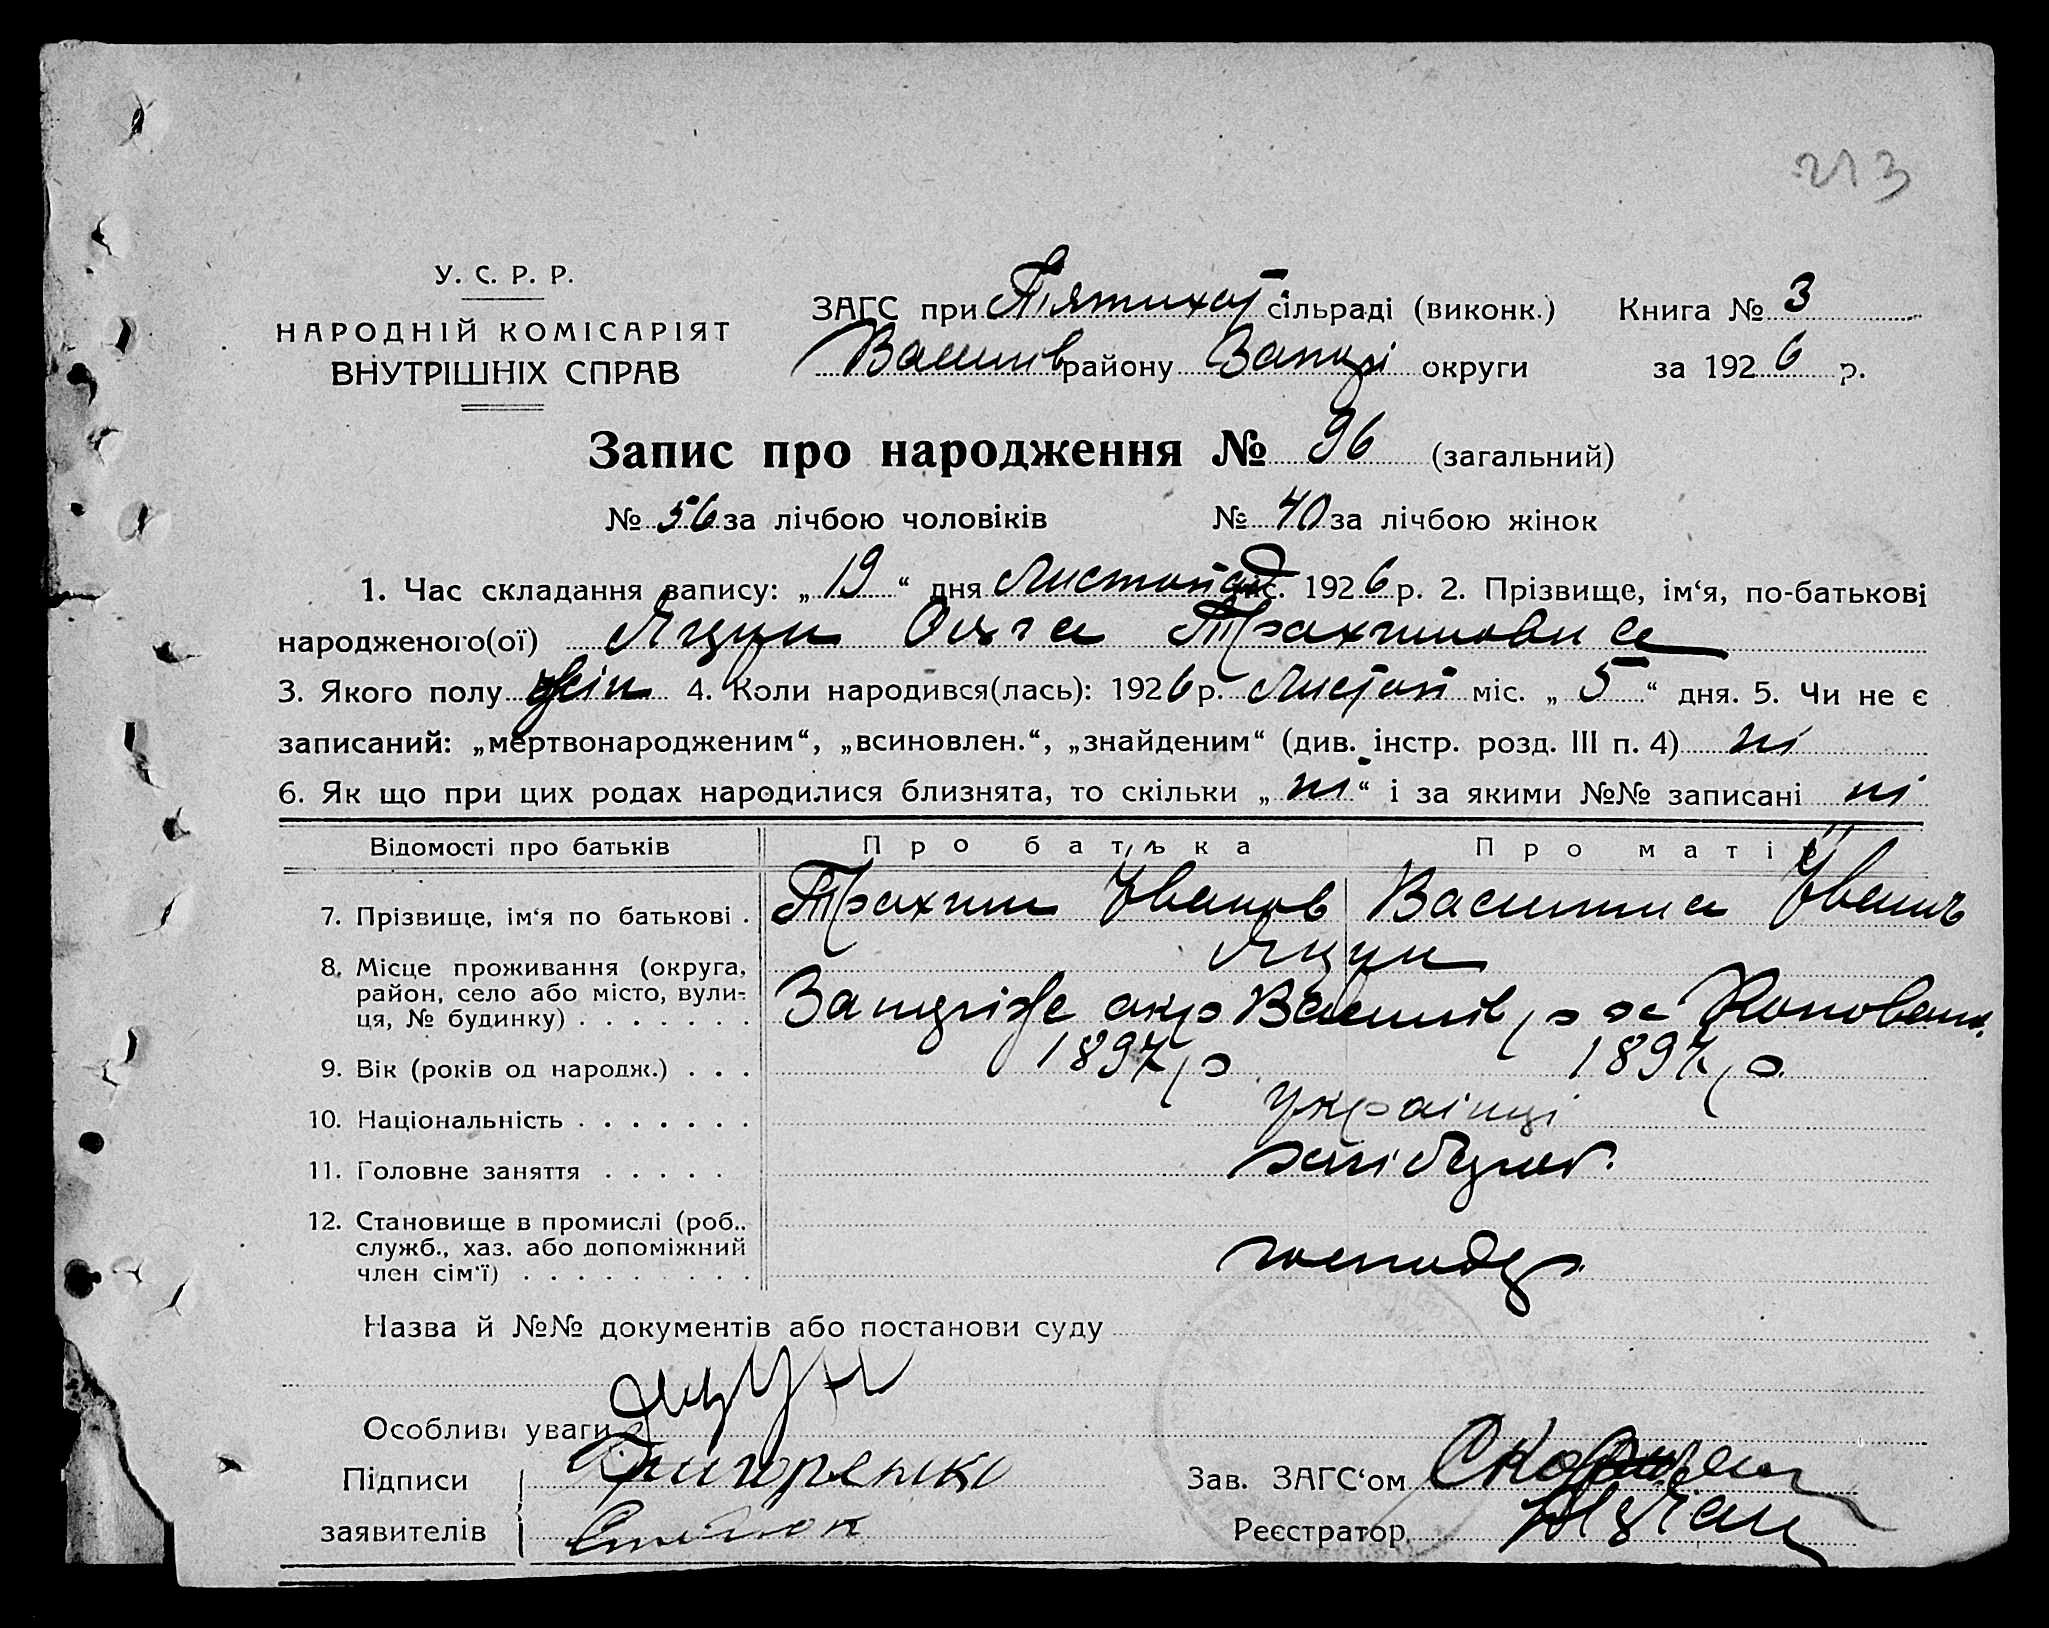 213
У. С. Р. Р.
НАРОДНІЙ КОМІСАРІЯТ
ВНУТРІШНІХ СПРАВ
ЗАГС при П'ятихат сільраді (виконк.) Книга № 3
Василів району Запорі округи за 1926 р.
Запис про народження № 96 (загальний)
№ 56 за лічбою чоловіків № 40 за лічбою жінок
1. Час складання запису: „ 19 “ дня Листопад міс. 1926 р. 2. Прізвище, ім‘я, по-батькові
народженого(ої) Яцун Ольга Трахимовна
3. Якого полу жін 4. Коли народився(лась): 1926 р. Листоп міс. „ 5 “ дня. 5. Чи не є
записаний: „мертвонародженим“, „всиновлен.“, „знайденим“ (див. інстр. розд. III п. 4) ні
6. Як що при цих родах народилися близнята, то скільки „ ні “ і за якими №№ записані ні
Відомості про батьків Про батька Про матір
7. Прізвище, ім‘я по батькові . Трахим Іванов Василина Іванів
Яцун
8. Місце проживання (округа,
район, село або місто, вули-
ця, № будинку) . . . . . . . Запоріже окр Василів р
9. Вік (років од народж.) . . . 1897 р 1897 р.
10. Національність . . . . . . . українці
11. Головне заняття . . . . . хлібороб.
12. Становище в промислі (роб..
служб., хаз. або допоміжний
член сім‘ї) . . . . . . . . . господар
Назва й №№ документів або постанови суду
Яцун
Особливі уваги
Підписи Григоренко Зав. ЗАГС‘ом
заявителів Реєстратор